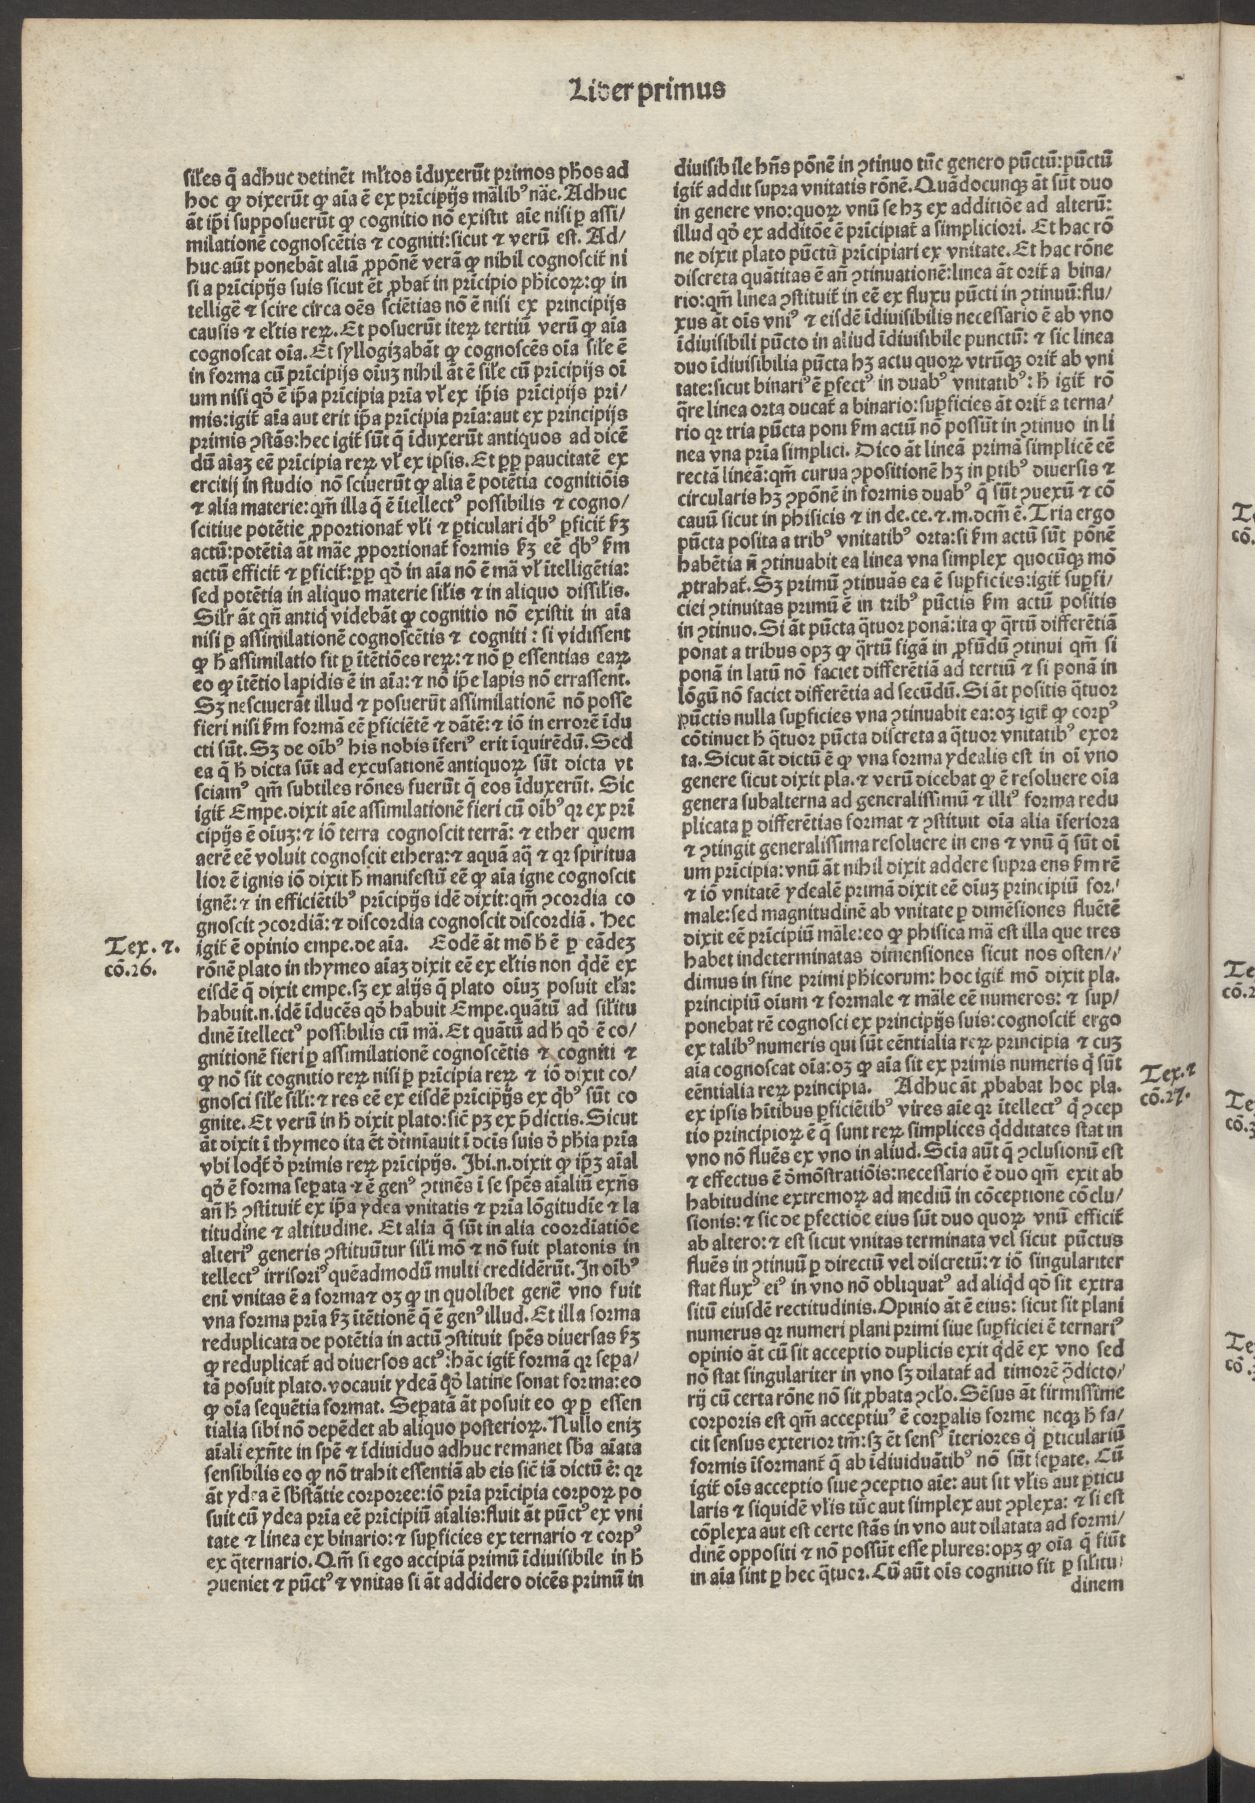 Liber primus
siles q̄ adhuc detinēt ml̄tos īduxerūt primos ph̄os ad
hoc ꝙ dixerūt ꝙ aīa ē ex prīcipijs mālibꝰ nāe. Adhuc
āt ip̄i supposuerūt ꝙ cognitio nō existit aīe nisi ꝑ assi/
milationē cognoscētis ⁊ cogniti: sicut ⁊ verū est. Ad/
huc aūt ponebāt aliā ꝓpōnē verā ꝙ nihil cognoscit̄ ni
si a prīcipijs suis sicut ēt ꝓbat̄ in prīcipio ph̄icoꝝ: ꝙ in
telligē ⁊ scire circa oēs sciētias nō ē nisi ex principijs
causis ⁊ el̄tis reꝝ. Et posuerūt iteꝝ tertiū verū ꝙ aīa
cognoscat oīa. Et syllogizabāt ꝙ cognoscēs oīa sile ē
in forma cū prīcipijs oīuꝫ nihil āt ē sile cū prīcipijs oī
um nisi qd̄ ē ip̄a prīcipia pria vl̄ ex ip̄is prīcipijs pri/
mis: igit̄ aīa aut erit ip̄a prīcipia prīa: aut ex principijs
primis ꝯstās: hec igit̄ sūt q̄ īduxerūt antiquos ad dicē
dū aīaꝫ eē prīcipia reꝝ vl̄ ex ipsis. Et ꝓꝑ paucitatē ex
ercitij in studio nō sciuerūt ꝙ alia ē potētia cognitiōis
⁊ alia materie: qm̄ illa q̄ ē ītellectꝰ possibilis ⁊ cogno/
scitiue potētie ꝓportionat̄ vl̄i ⁊ ꝑticulari qb̄ꝰ ꝑficit̄ ẜꝫ
actū: potētia āt māe ꝓportionat̄ formis ẜꝫ eē qb̄ꝰ ẜm
actū efficit̄ ⁊ ꝑficit̄: ꝓꝑ qd̄ in aīa nō ē mā vl̄ ītelligētia:
sed potētia in aliquo materie silis ⁊ in aliquo dissilis.
Silr āt qn̄ antiq̄ videbāt ꝙ cognitio nō existit in aīa
nisi ꝑ assimilationē cognoscētis ⁊ cogniti: si vidissent
ꝙ h̄ assimilatio fit ꝑ ītētiōes reꝝ: ⁊ nō ꝑ essentias eaꝝ
eo ꝙ ītētio lapidis ē in aīa: ⁊ nō ip̄e lapis nō errassent.
Sꝫ nesciuerāt illud ⁊ posuerūt assimilationē nō posse
fieri nisi ẜm formā eē ꝑficiētē ⁊ dātē: ⁊ iō in errorē īdu
cti sūt. Sꝫ de oībꝰ his nobis īferiꝰ erit īquirēdū. Sed
ea q̄ h̄ dicta sūt ad excusationē antiquoꝝ sūt dicta vt
sciamꝰ qm̄ subtiles rōnes fuerūt q̄ eos īduxerūt. Sic
igit̄ Empe. dixit aīe assimilationē fieri cū oībꝰ qr ex prī
cipijs ē oīuꝫ: ⁊ iō terra cognoscit terrā: ⁊ ether quem
aerē eē voluit cognoscit ethera: ⁊ aquā aq̄ ⁊ qr spiritua
lior ē ignis iō dixit h̄ manifestū eē ꝙ aīa igne cognoscit
ignē: ⁊ in efficiētibꝰ prīcipijs idē dixit: qm̄ ꝯcordia co
gnoscit ꝯcordiā: ⁊ discordia cognoscit discordiā. Hec
igit̄ ē opinio empe. de aīa. Eodē āt mō h̄ ē ꝑ eādeꝫ
rōnē plato in thymeo aīaꝫ dixit eē ex el̄tis non qd̄ē ex
eisdē q̄ dixit empe. sꝫ ex alijs q̄ plato oīuꝫ posuit el̄a:
habuit. n. idē īducēs qd̄ habuit Empe. quātū ad silitu
dinē ītellectꝰ possibilis cū mā. Et quātū ad h̄ qd̄ ē co/
gnitionē fieri ꝑ assimilationē cognoscētis ⁊ cogniti ⁊
ꝙ nō sit cognitio reꝝ nisi ꝑ prīcipia reꝝ ⁊ iō dixit co/
gnosci sile sili: ⁊ res eē ex eisdē prīcipijs ex qb̄ꝰ sūt co
gnite. Et verū in h̄ dixit plato: sic̄ pꝫ ex p̄dictis. Sicut
āt dixit ī thymeo ita ēt d̄t̄mīauit ī dc̄is suis d̄ ph̄ia pria
vbi loqt̄ d̄ primis reꝝ prīcipijs. Ibi. n. dixit ꝙ ip̄ꝫ aīal
qd̄ ē forma seꝑata ⁊ ē genꝰ ꝯtinēs ī se sp̄es aīaliū exn̄s
an̄ h̄ ꝯstituit̄ ex ip̄a ydea vnitatis ⁊ prīa lōgitudīe ⁊ la
titudine ⁊ altitudine. Et alia q̄ sūt in alia coordīatiōe
alteriꝰ generis ꝯstituūtur sili mō ⁊ nō fuit platonis in
tellectꝰ irrisoriꝰ quēadmodū multi credidērūt. In oībꝰ
enī vnitas ē a forma ⁊ oꝫ ꝙ in quolibet genē vno fuit
vna forma pria ẜꝫ ītētionē q̄ ē genꝰ illud. Et illa forma
reduplicata de potētia in actū ꝯstituit sp̄es diuersas ẜꝫ
ꝙ reduplicat̄ ad diuersos actꝰ: hāc igit̄ formā qr seꝑa/
tā posuit plato. vocauit ydeā qd̄ latine sonat forma: eo
ꝙ oīa sequētia format. Seꝑatā āt posuit eo ꝙ ꝑ essen
tialia sibi nō depēdet ab aliquo posterioꝝ. Nullo eniꝫ
aīali exn̄te in spē ⁊ īdiuiduo adhuc remanet sb̄a aīata
sensibilis eo ꝙ nō trahit essentiā ab eis sic̄ iā dictū ē: qr
āt ydea ē sb̄stātie corporee: iō pria prīcipia corpoꝝ po
suit cū ydea pria eē prīcipiū aīalis: fluit āt pūctꝰ ex vni
tate ⁊ linea ex binario: ⁊ suꝑficies ex ternario ⁊ corpꝰ
ex q̄ternario. Qm̄ si ego accipiā primū īdiuisibile in h̄
ꝯueniet ⁊ pūctꝰ ⁊ vnitas si āt addidero dicēs primū in
Tex. ⁊.
cō. 26.
diuisibile hn̄s pōnē in ꝯtinuo tūc genero pūctū: pūctū
igit̄ addit supra vnitatis rōnē. Quādocunqꝫ āt sūt duo
in genere vno: quoꝝ vnū se hꝫ ex additiōe ad alterū:
illud qd̄ ex additōe ē prīcipiat̄ a simpliciori. Et hac rō
ne dixit plato pūctū prīcipiari ex vnitate. Et hac rōne
discreta quātitas ē an̄ ꝯtinuationē: linea āt orit̄ a bina/
rio: qm̄ linea ꝯstituit̄ in eē ex fluxu pūcti in ꝯtinuū: flu/
xus āt oīs vniꝰ ⁊ eisdē īdiuisibilis necessario ē ab vno
īdiuisibili pūcto in aliud īdiuisibile punctū: ⁊ sic linea
duo īdiuisibilia pūcta hꝫ actu quoꝝ vtrūqꝫ orit̄ ab vni
tate: sicut binariꝰ ē ꝑfectꝰ in duabꝰ vnitatibꝰ: h̄ igit̄ rō
q̄re linea orta ducat̄ a binario: suꝑficies āt orit̄ a terna/
rio qr tria pūcta poni ẜm actū nō possūt in ꝯtinuo in li
nea vna pria simplici. Dico āt lineā primā simplicē eē
rectā lineā: qm̄ curua ꝯpositionē hꝫ in ꝑtibꝰ diuersis ⁊
circularis hꝫ ꝯpōnē in formis duabꝰ q̄ sūt ꝯuexū ⁊ cō
cauū sicut in phisicis ⁊ in de. ce. ⁊. m. dcm̄ ē. Tria ergo
pūcta posita a tribꝰ vnitatibꝰ orta: si ẜm actū sūt pōnē
habētia n̄ ꝯtinuabit ea linea vna simplex quocūqꝫ mō
ꝓtrahat̄. Sꝫ primū ꝯtinuās ea ē suꝑficies: igit̄ suꝑfi/
ciei ꝯtinuitas primū ē in tribꝰ pūctis ẜm actū positis
in ꝯtinuo. Si āt pūcta q̄tuor ponā: ita ꝙ q̄rtū differētiā
ponat a tribus opꝫ ꝙ q̄rtū figā in ꝓfūdū ꝯtinui qm̄ si
ponā in latū nō faciet differētiā ad tertiū ⁊ si ponā in
lōgū nō faciet differētia ad secūdū. Si āt positis q̄tuor
pūctis nulla suꝑficies vna ꝯtinuabit ea: oꝫ igit̄ ꝙ corpꝰ
cōtinuet h̄ q̄tuor pūcta discreta a q̄tuor vnitatibꝰ exor
ta. Sicut āt dictū ē ꝙ vna forma ydealis est in oī vno
genere sicut dixit pla. ⁊ verū dicebat ꝙ ē resoluere oīa
genera subalterna ad generalissimū ⁊ illiꝰ forma redu
plicata ꝑ differētias format ⁊ ꝯstituit oīa alia īferiora
⁊ ꝯtingit generalissima resoluere in ens ⁊ vnū q̄ sūt oī
um prīcipia: vnū āt nihil dixit addere supra ens ẜm rē
⁊ iō vnitatē ydealē primā dixit eē oīuꝫ principiū for/
male: sed magnitudinē ab vnitate ꝑ dimēsiones fluētē
dixit eē prīcipiū māle: eo ꝙ phisica mā est illa que tres
habet indeterminatas dimensiones sicut nos osten/
dimus in fine primi ph̄icorum: hoc igit̄ mō dixit pla.
principiū oīum ⁊ formale ⁊ māle eē numeros: ⁊ sup/
ponebat rē cognosci ex principijs suis: cognoscit̄ ergo
ex talibꝰ numeris qui sūt eēntialia reꝝ principia ⁊ cuꝫ
aīa cognoscat oīa: oꝫ ꝙ aīa sit ex primis numeris q̄ sūt
eēntialia reꝝ principia. Adhuc āt ꝓbabat hoc pla.
ex ipsis hn̄tibus ꝑficiētibꝰ vires aīe qr ītellectꝰ q̄ ꝯcep
tio principioꝝ ē q̄ sunt reꝝ simplices qd̄ditates stat in
vno nō fluēs ex vno in aliud. Scīa aūt q̄ ꝯclusionū est
⁊ effectus ē d̄mōstratiōis: necessario ē duo qm̄ exit ab
habitudine extremoꝝ ad mediū in cōceptione cōclu/
sionis: ⁊ sic de ꝑfectiōe eius sūt duo quoꝝ vnū efficit̄
ab altero: ⁊ est sicut vnitas terminata vel sicut pūctus
fluēs in ꝯtinuū ꝑ directū vel discretū: ⁊ iō singulariter
stat fluxꝰ eiꝰ in vno nō obliquatꝰ ad aliqd̄ qd̄ sit extra
sitū eiusdē rectitudinis. Opinio āt ē eius: sicut sit plani
numerus qr numeri plani primi siue suꝑficiei ē ternariꝰ
opinio āt cū sit acceptio duplicis exit qd̄ē ex vno sed
nō stat singulariter in vno sꝫ dilatat̄ ad timorē ꝯ̄dicto/
rij cū certa rōne nō sit ꝓbata ꝯclo. Sēsus āt firmissime
corporis est qm̄ acceptiuꝰ ē corꝑalis forme neqꝫ h̄ fa/
cit sensus exterior tm̄: sꝫ ēt sensꝰ īteriores q̄ ꝑticulariū
formis īformant̄ q̄ ab īdiuiduātibꝰ nō sūt seꝑate. Cū
igit̄ oīs acceptio siue ꝯceptio aīe: aut sit vl̄is aut ꝑticu
laris ⁊ siquidē vl̄is tūc aut simplex aut ꝯplexa: ⁊ si est
cōplexa aut est certe stās in vno aut dilatata ad formi/
dinē oppositi ⁊ nō possūt esse plures: opꝫ ꝙ oīa q̄ fiūt
in aīa sint ꝑ hec q̄tuor. Cū aūt oīs cognitio fit ꝑ silitu/
dinem
Tex. ⁊
cō. 27.